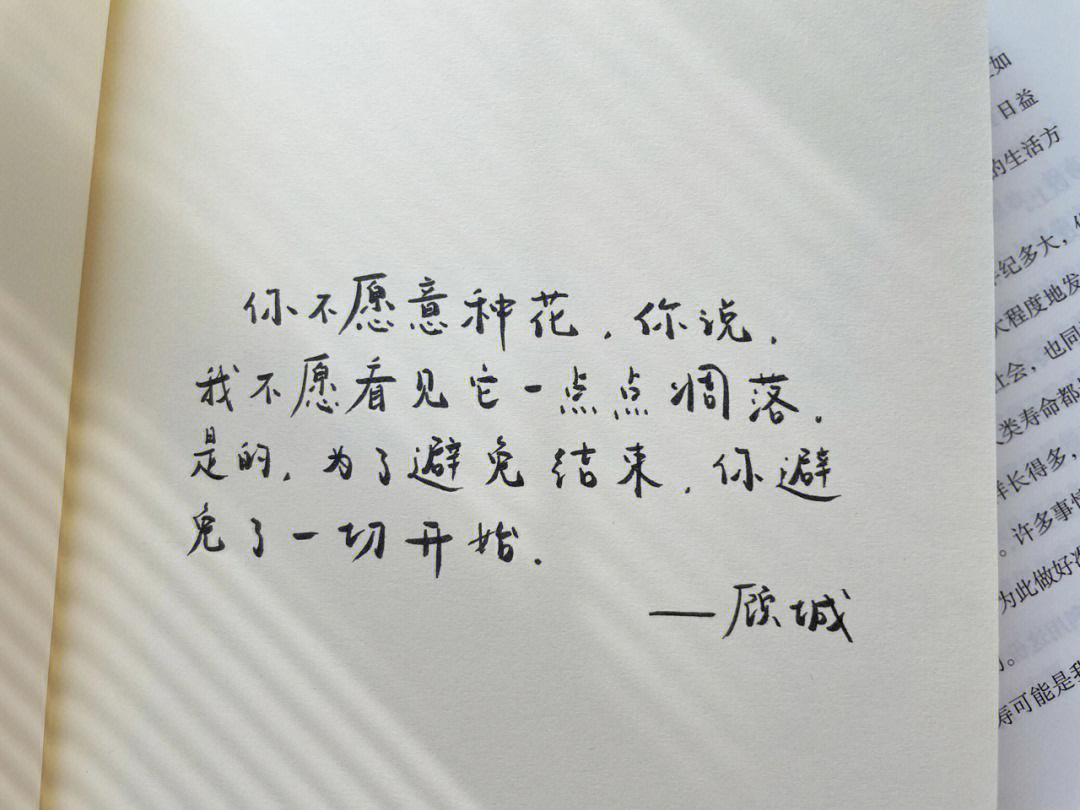 你不愿意种花，你说，
我不愿看见它一点点凋落.
是的，为了避免结束，你避
免了一切开始.
——顾城
如
日益
的生活方
纪多大，
程度地发
社会，也同
人类寿命都
样长得多，
。许多事情
为此做好准
寿可能是我